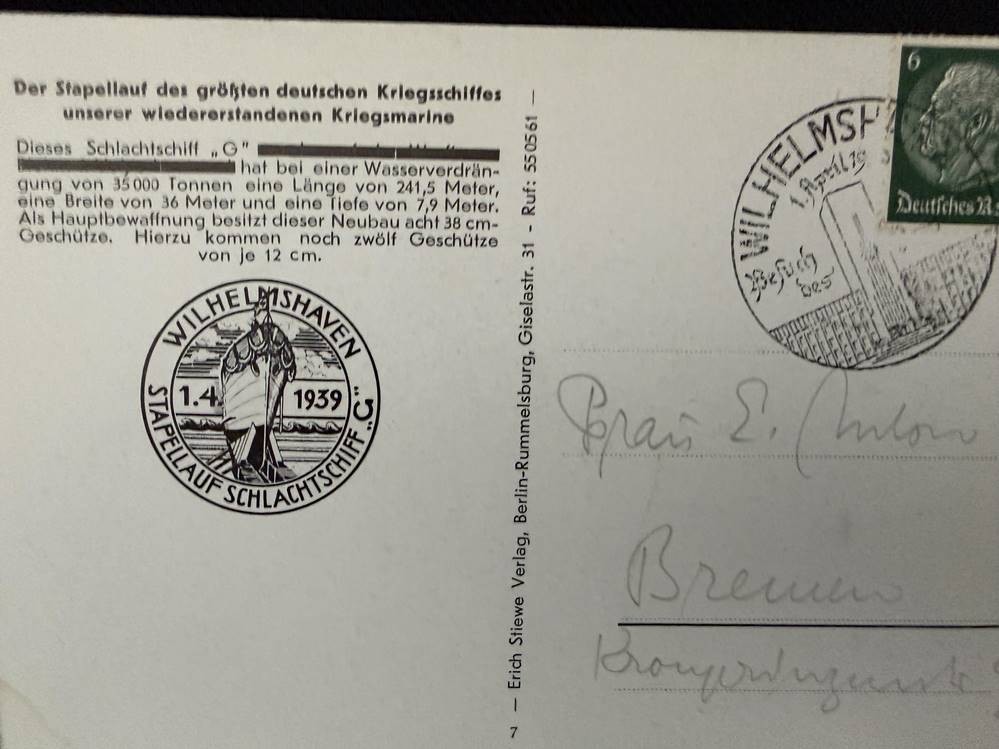 Der Stapellauf des größten deutschen Kriegsschiffes
unserer wiedererstandenen Kriegsmarine
Dieses Schlachtschiff „G“
hat bei einer Wasserverdrän-
gung von 35 000 Tonnen eine Länge von 241,5 Meter,
eine Breite von 36 Meter und eine Tiefe von 7,9 Meter.
Als Hauptbewaffnung besitzt dieser Neubau acht 38 cm-
Geschütze. Hierzu kommen noch zwölf Geschütze
von je 12 cm.
WILHELMSHAVEN
1.4. 1939
STAPELLAUF SCHLACHTSCHIFF „G“
— Erich Stiewe Verlag, Berlin-Rummelsburg, Giselastr. 31 - Ruf: 55 05 61 —
7
6
Deutsches R
WILHELMSH
1. April 19
Besuch
des
Frau E.
Bremen